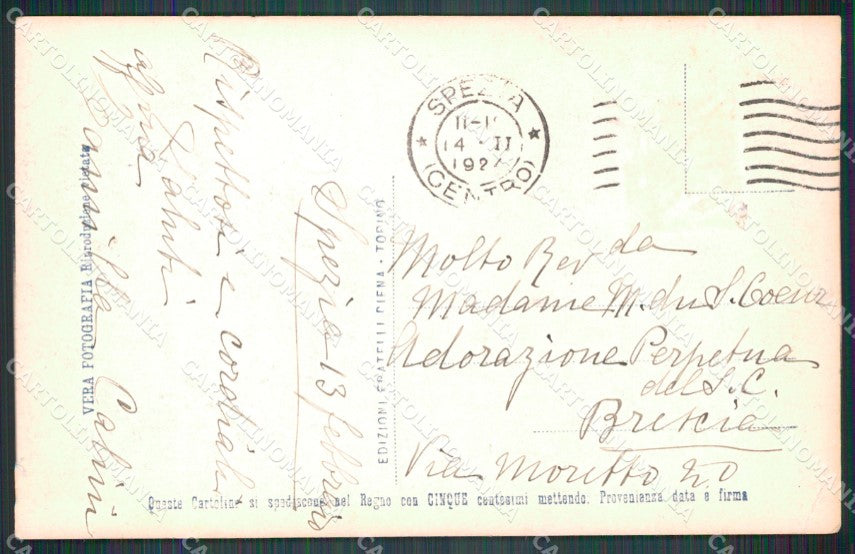 SPEZIA
11-1
14 · II
1927
(CENTRO)
Spezia 13 febbraio
Rispettosi e cordiali
saluti
Camilla Cabini
Molto Rev da
Madame M. du S. Coeur
Adorazione Perpetua
del S. C.
Brescia
Via Moretto 20
EDIZIONI FRATELLI DIENA - TORINO
VERA FOTOGRAFIA Riproduzione Vietata
Queste Cartoline si spediscono nel Regno con CINQUE centesimi mettendo: Provenienza data e firma
CARTOLINOMANIA